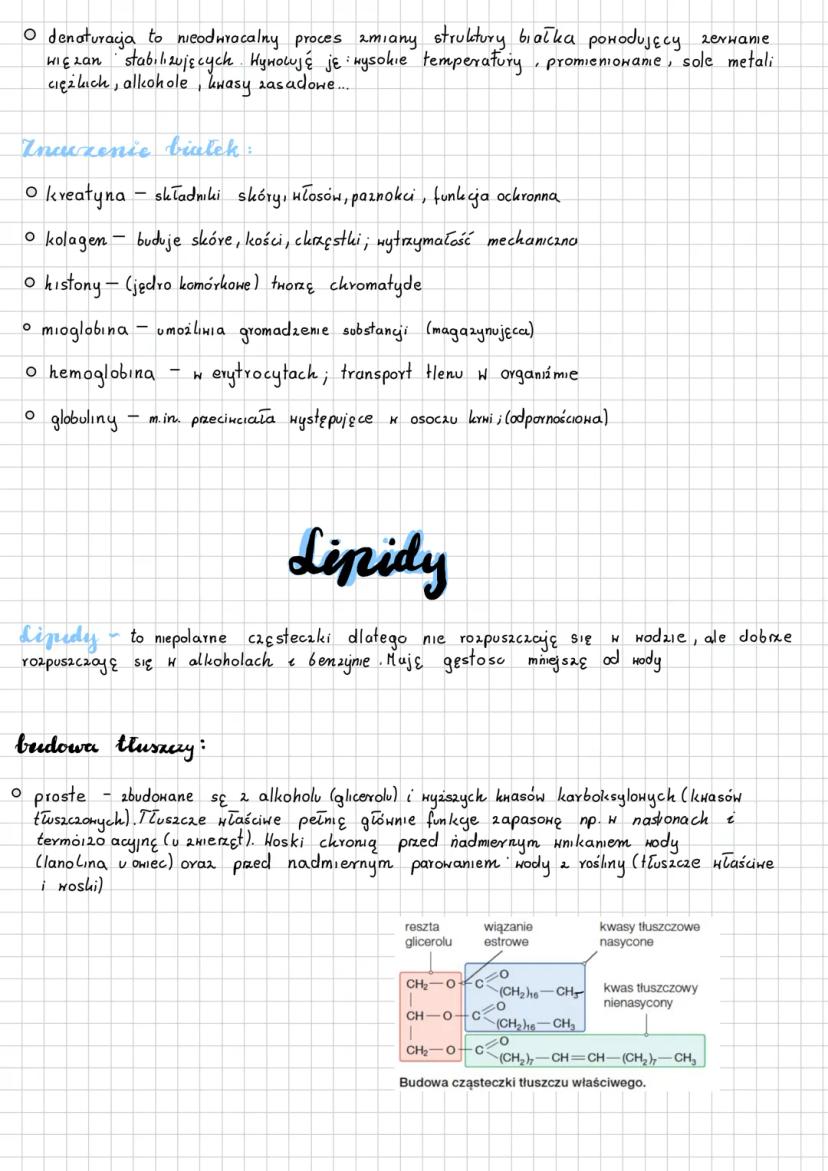 denaturacja to nieodwracalny proces zmiany struktury białka powodujący zerwanie
wiązań stabilizujących. Wywołuję ję: wysokie temperatury, promieniowanie, sole metali
ciężkich, alkohole, kwasy zasadowe...
Znaczenie białek:
kreatyna – składniki skóry, włosów, paznokci, funkcja ochronna
kolagen – buduje skóre, kości, chrzęstki; wytrzymałość mechaniczna
histony – (jądro komórkowe) tworzę chromatydę
mioglobina – umożliwia gromadzenie substancji (magazynująca)
hemoglobina – w erytrocytach; transport tlenu w organiźmie
globuliny – m.in. przeciwciała występujęce w osoczu krwi; (odpornościowa)
Lipidy
Lipidy – to niepolarne częsteczki dlatego nie rozpuszczaję się w wodzie, ale dobrze
rozpuszczaję się w alkoholach i benzynie. Maję gęstosc mniejszę od wody
budowa tłuszczy:
proste – zbudowane sę z alkoholu (glicerolu) i wyższych kwasów karboksylowych (kwasów
tłuszczonych). Tłuszcze właściwe pełnię głównie funkcje zapasowę np. w nasionach i
termoizolacyjnę (u zwierzęt). Woski chronię przed nadmiernym wnikaniem wody
(lanolina u owiec) oraz przed nadmiernym parowaniem wody z rośliny (tłuszcze właściwe
i woski)
reszta glicerolu
wiązanie estrowe
kwasy tłuszczowe nasycone
kwas tłuszczowy nienasycony
CH₂—O—C=O
(CH₂)₁₆—CH₃
CH—O—C=O
(CH₂)₁₆—CH₃
CH₂—O—C=O
(CH₂)₇—CH=CH—(CH₂)₇—CH₃
Budowa cząsteczki tłuszczu właściwego.